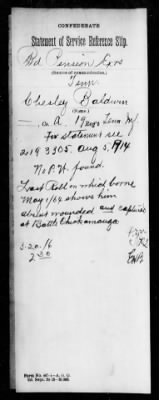 CONFEDERATE
Statement of Service Reference Slip.
Bd Pension Exrs
(Source of communication.)
Tenn
Chesley Baldwin
(Name.)
Co. A, 19 Regt Tenn Inf
For statement see
2193305. Aug 5, 1914
No P. W. found.
Last Roll on which borne
May 1/64 shows him
absent wounded and captured
at Battle Chickamauga
3-20-16
230